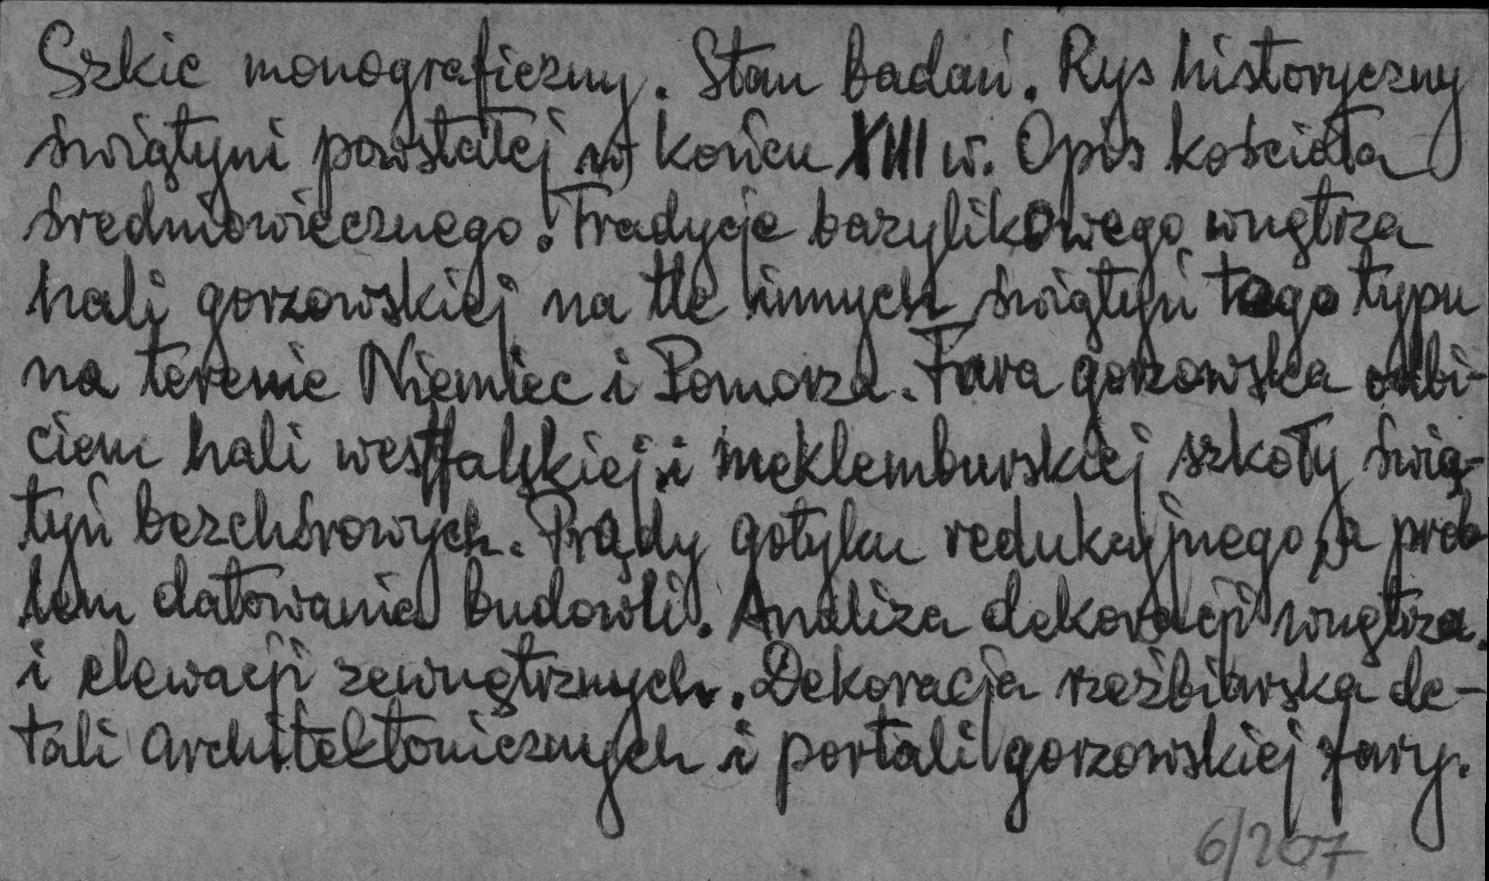 Szkic monograficzny. Stan badań. Rys historyczny
świątyni powstałej w końcu XIII w. Opis kościoła
średniowiecznego. Tradycje bazylikowego wnętrza
hali gorzowskiej na tle innych świątyń tego typu
na terenie Niemiec i Pomorza. Fara gorzowska odbi-
ciem hali westfalskiej i meklemburskiej szkoły świą-
tyń bezchórowych. Prądy gotyku redukcyjnego, a prob
lem datowania budowli. Analiza dekoracji wnętrza
i elewacji zewnętrznych. Dekoracja rzeźbiarska de-
tali architektonicznych i portali gorzowskiej fary.
6/207